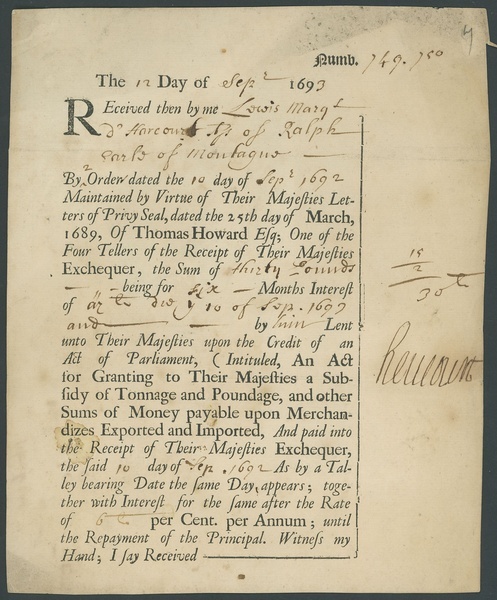 4
Numb. 749. 750
The 12 Day of Sepr 1693
REceived then by me Lewis Marqt
D'Harcourt of Ralph
Earle of Montague
By 2 Order dated the 10 day of Sepr 1692
Maintained by Virtue of Their Majeſties Let-
ters of Privy Seal, dated the 25th day of March,
1689, Of Thomas Howard Eſq; One of the
Four Tellers of the Receipt of Their Majeſties
Exchequer, the Sum of thirty Pounds
— being for six — Months Interest
of die ye 10 of Sep. 1693
and — — by him Lent
unto Their Majeſties upon the Credit of an
Act of Parliament, (Intituled, An Act
for Granting to Their Majeſties a Sub-
ſidy of Tonnage and Poundage, and other
Sums of Money payable upon Merchan-
dizes Exported and Imported, And paid into
the Receipt of Their Majeſties Exchequer,
the ſaid 10 day of Sep. 1692 As by a Tal-
ley bearing Date the ſame Day, appears; toge-
ther with Intereſt for the ſame after the Rate
of 6 per Cent. per Annum; until
the Repayment of the Principal. Witneſs my
Hand; I ſay Received
15
2
30